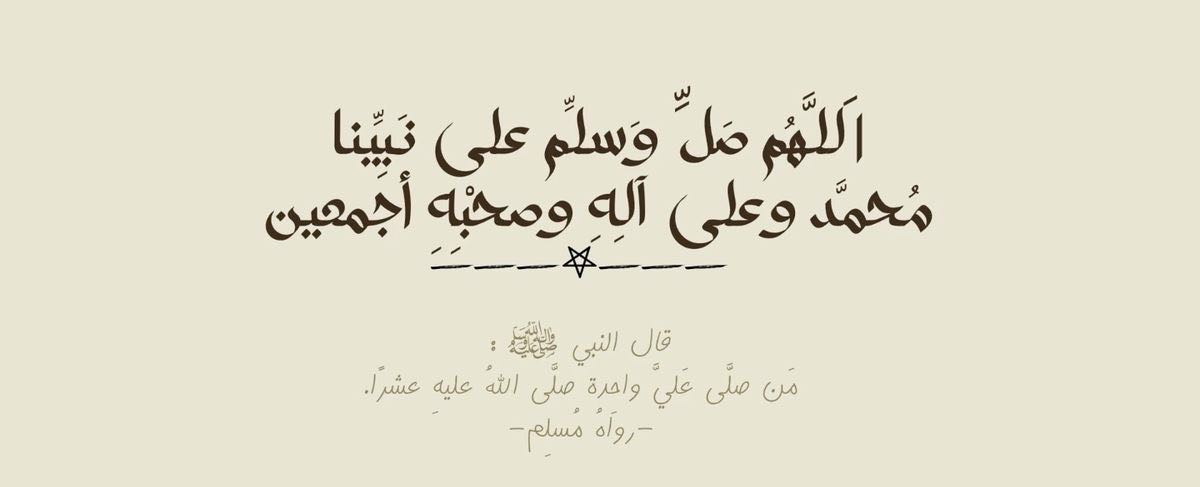 اَللَّهُم صَلِّ وَسلِّم على نَبِيِّنا
مُحمَّد وعلى آلِهِ وصحْبِهِ أجمعين
قال النبي ﷺ :
مَن صلَّى عَليَّ واحدة صلَّى اللهُ عليهِ عشرًا.
-روَاهُ مُسلِم-